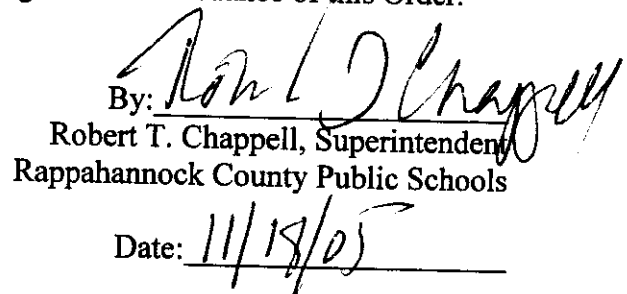 of this Order.
By: Robt T Chappell
Robert T. Chappell, Superintendent
Rappahannock County Public Schools
Date: 11/18/05